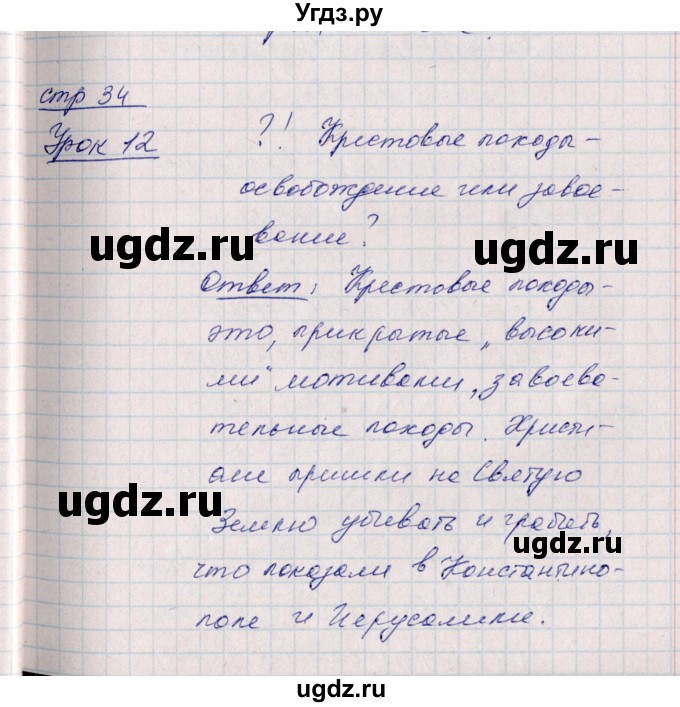 Угдз.ру
стр 34
Урок 12
?! Крестовые походы -
освобождение или завое-
вание?
ugdz.ru
ugdz.ru
Ответ: Крестовые походы-
это, прикрытые „высоки-
ми" мотивами, завоева-
тельные походы. Христи-
ане пришли на Святую
ugdz.ru
Землю убивать и грабить,
ugdz.ru
что показали в Константино-
поле и Иерусалиме.
ugdz.ru